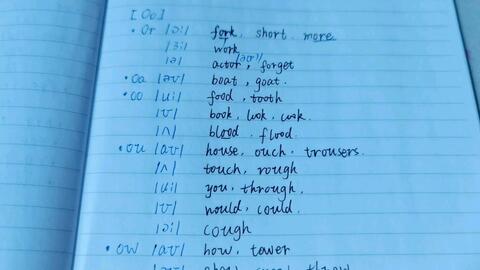 [Oo]
• or /ɔ:/ fork, short, more
/ɜ:/ work
/ə/ actor /ər/, forget
• oa /əʊ/ boat, goat.
• oo /u:/ food, tooth
/ʊ/ book, look, cook.
/ʌ/ blood, flood.
• ou /aʊ/ house, ouch, trousers.
/ʌ/ touch, rough
/u:/ you, through,
/ʊ/ would, could.
/ɔ:/ cough
• ow /aʊ/ how, tower